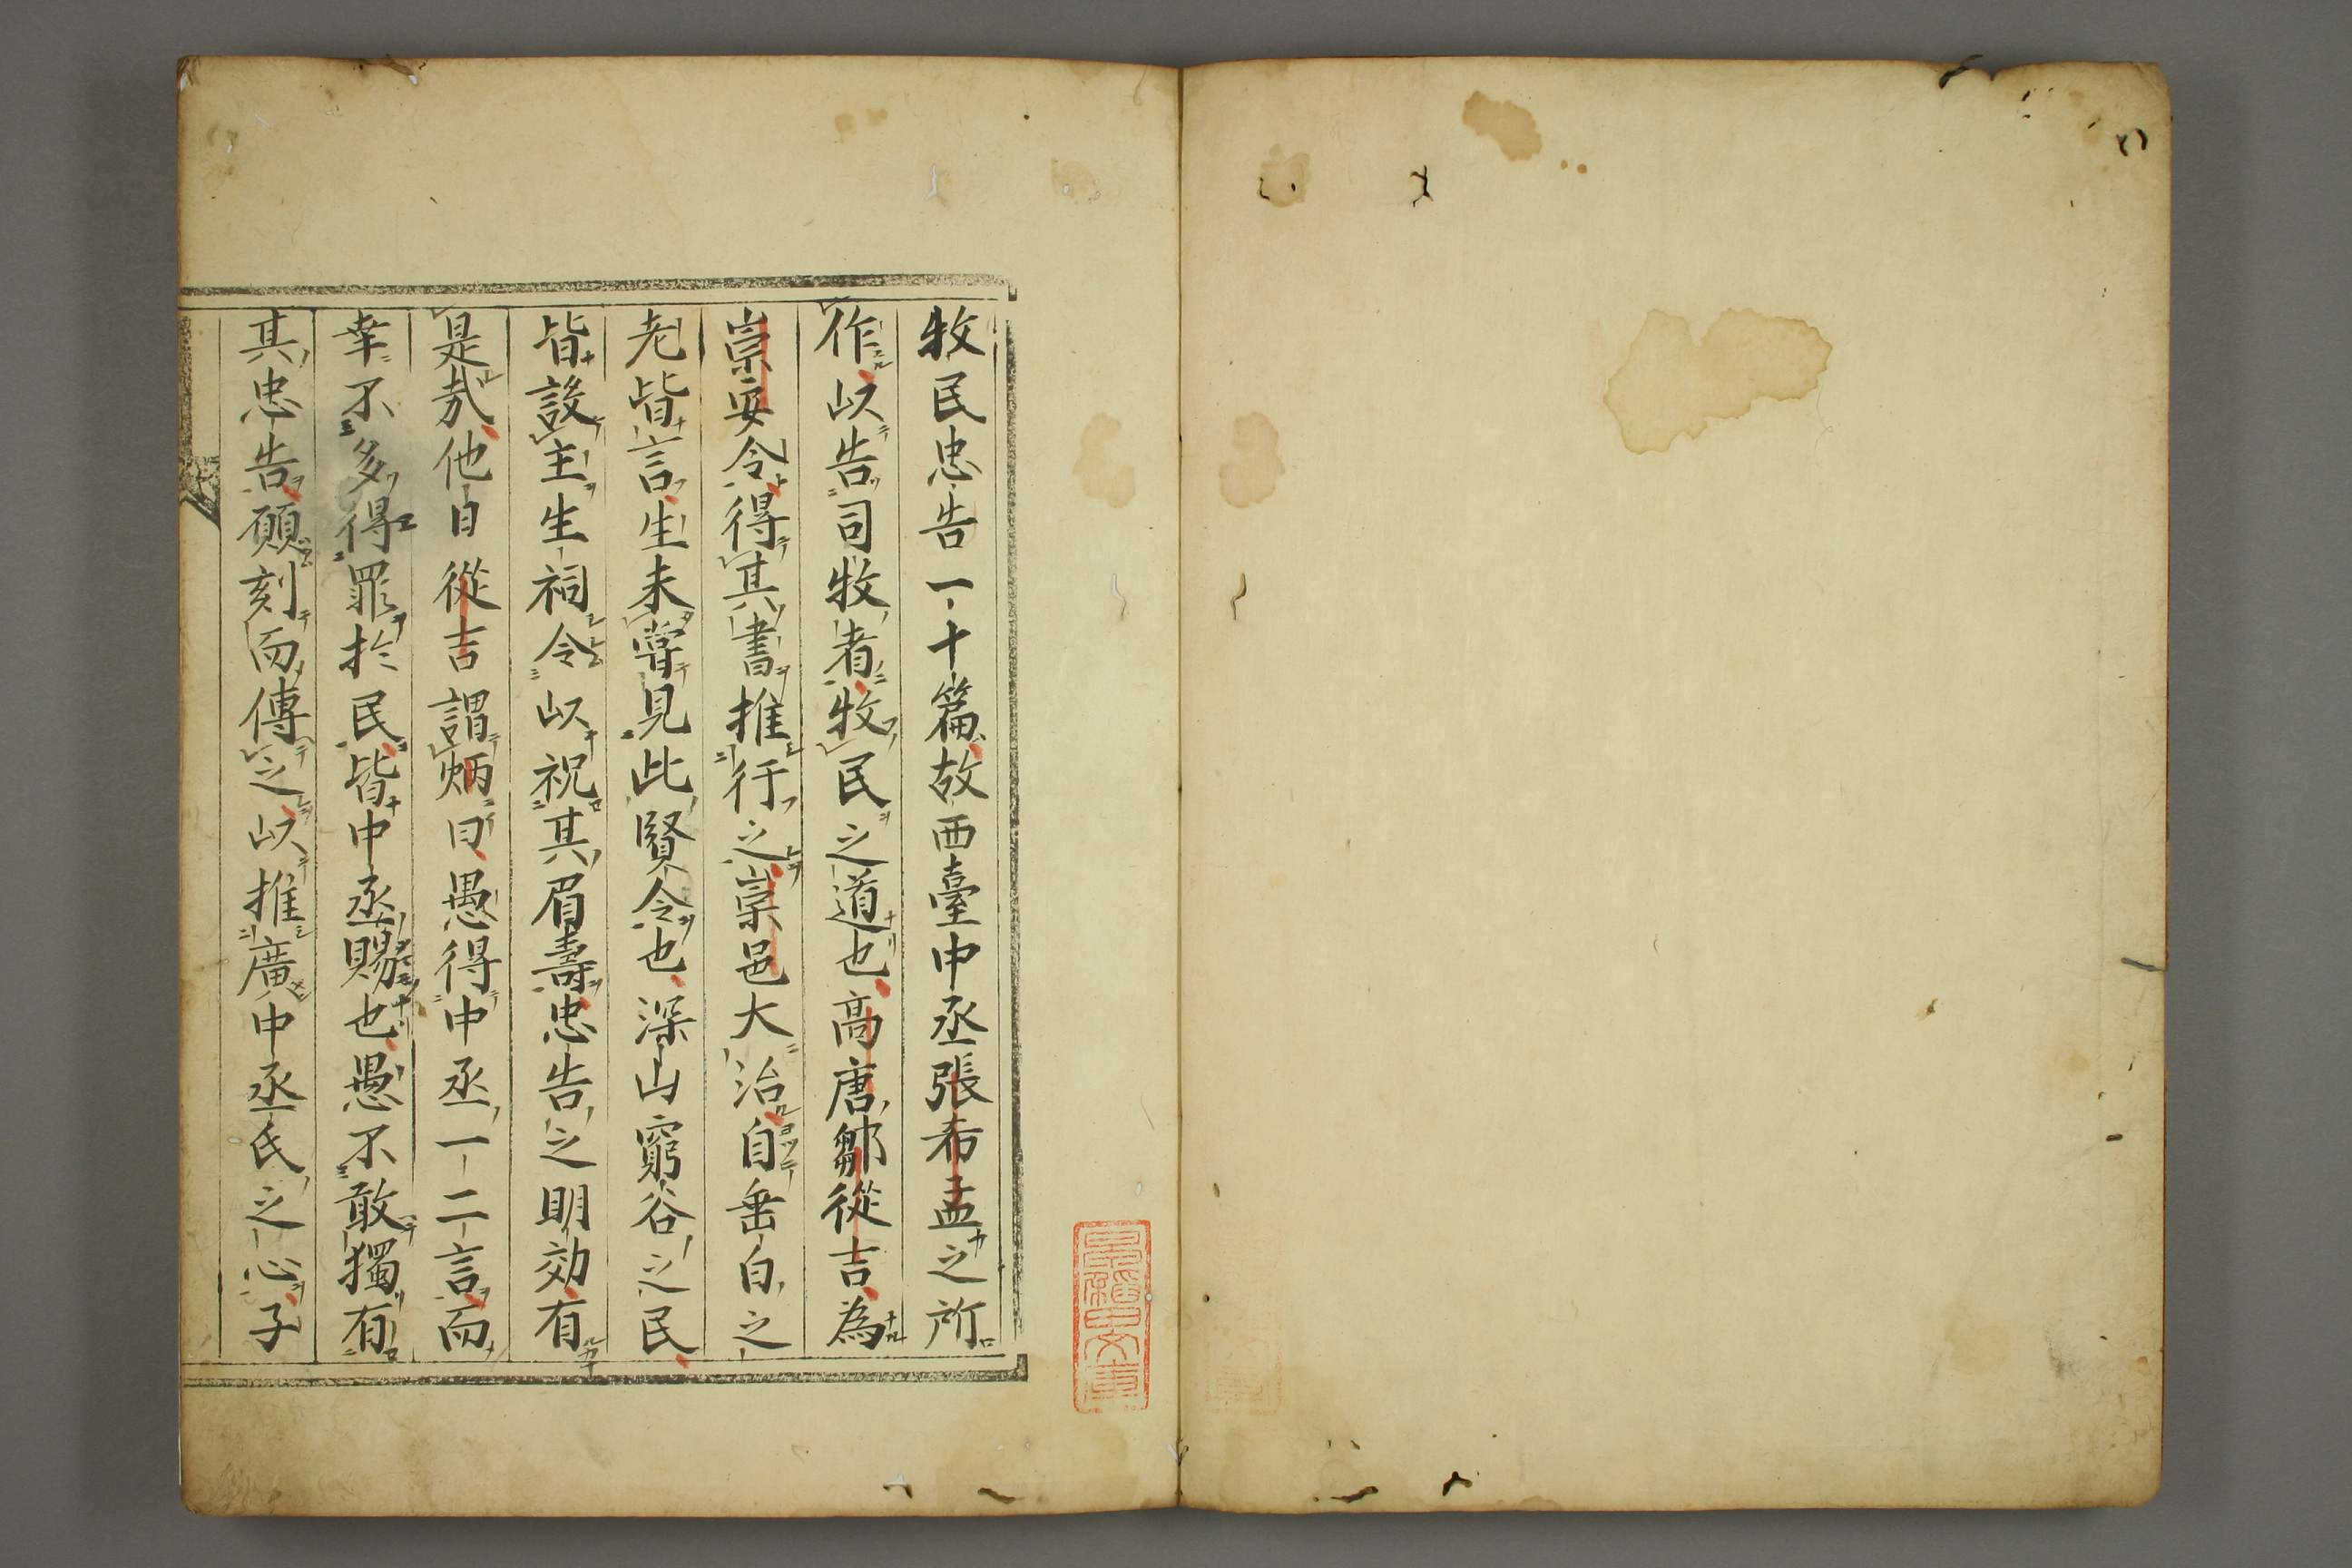 牧民忠告一十篇故西臺中丞張希孟之所
作以告司牧者牧民之道也高唐鄒從吉為
崇安令得其書推行之崇邑大治自垂白之
老皆言生未嘗見此賢令也深山窮谷之民
皆設主生祠令以祝其眉壽忠告之明効有
是哉他日從吉謂炳曰愚得中丞一二言而
幸不多得罪於民皆中丞賜也愚不敢獨有
其忠告願刻而傳之以推廣中丞氏之心子